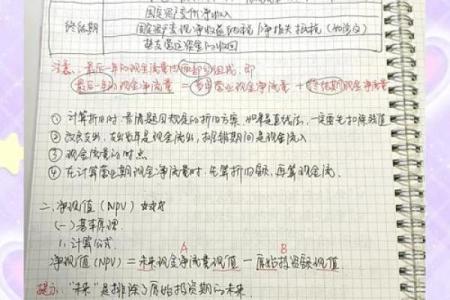 固定资产变价净收入
终结期 固定资产变现净收益纳税/净损失抵税(如涉及)
垫支营运资金的收回
注意:最后一年的现金流量由两部分组成,即
最后一年的现金净流量 = 营业现金净流量 + 终结期现金净流量
① 计算折旧时,看清题目规定的折旧方案,如果是直线法,一定要先扣除残值
② 改良支出,支出当年是现金流出,摊销期间是现金流入
③ 现金流的时点
④ 在计算营业期现金净流量时,先算折旧额,再算现金流.
二、净现值(NPV)
(一) 基本原理
1. 计算公式
A B
净现值(NPV)= 未来现金净流量现值 - 原始投资额现值
提示:"未来"是排除了原始投资期的未来.